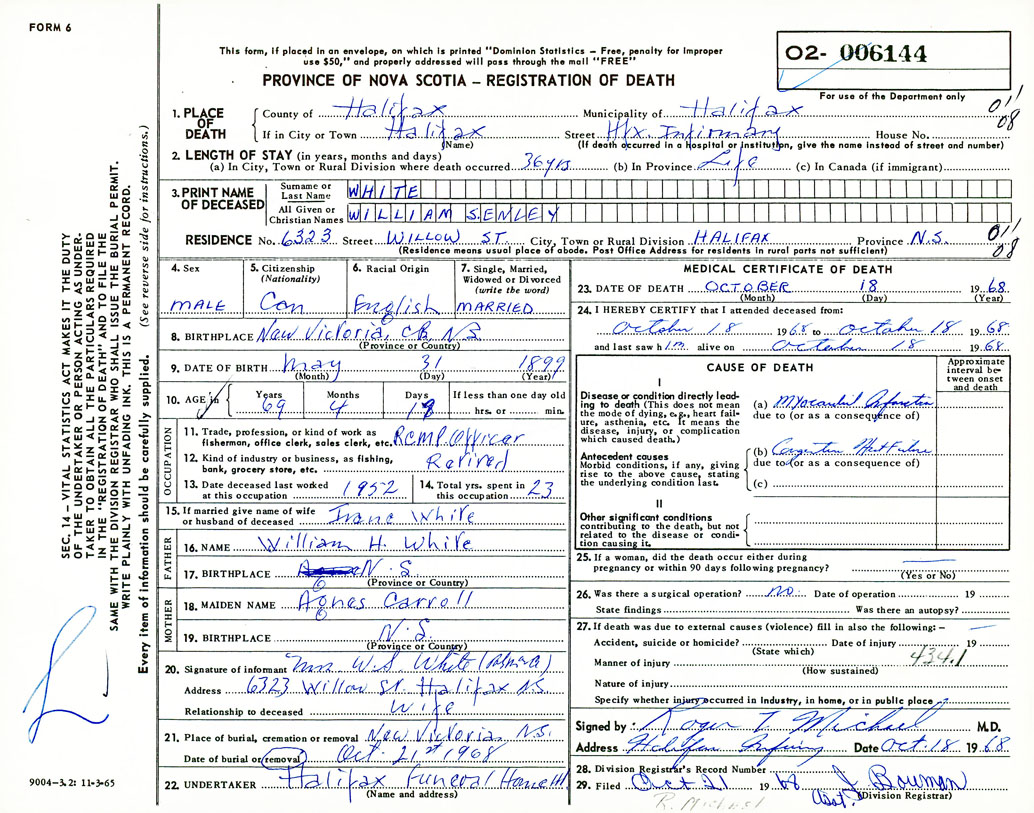 FORM 6
This form, if placed in an envelope, on which is printed "Dominion Statistics – Free, penalty for improper
use $50," and properly addressed will pass through the mail "FREE"
O2- 006144
PROVINCE OF NOVA SCOTIA – REGISTRATION OF DEATH
For use of the Department only
011
08
1. PLACE OF DEATH
County of Halifax Municipality of Halifax
If in City or Town Halifax Street Hfx. Infirmary House No.
(Name) (If death occurred in a Hospital or Institution, give the name instead of street and number)
2. LENGTH OF STAY (in years, months and days)
(a) In City, Town or Rural Division where death occurred 36 yrs (b) In Province Life (c) In Canada (if immigrant)
3. PRINT NAME OF DECEASED
Surname or Last Name WHITE
All Given or Christian Names WILLIAM SENLEY
RESIDENCE No. 6323 Street WILLOW ST. City, Town or Rural Division HALIFAX Province N.S.
(Residence means usual place of abode. Post Office Address for residents in rural parts not sufficient)
011
08
4. Sex
MALE
5. Citizenship
(Nationality)
Can
6. Racial Origin
English
7. Single, Married,
Widowed or Divorced
(write the word)
MARRIED
8. BIRTHPLACE New Victoria, CB, NS
(Province or Country)
9. DATE OF BIRTH May 31 1899
(Month) (Day) (Year)
10. AGE in
Years Months Days If less than one day old
69 4 18 hrs. or min.
OCCUPATION
11. Trade, profession, or kind of work as
fisherman, office clerk, sales clerk, etc. RCMP Officer
12. Kind of industry or business, as fishing,
bank, grocery store, etc. Retired
13. Date deceased last worked
at this occupation 1952
14. Total yrs. spent in
this occupation 23
15. If married give name of wife
or husband of deceased Irene White
FATHER
16. NAME William H. White
17. BIRTHPLACE N.S.
(Province or Country)
MOTHER
18. MAIDEN NAME Agnes Carroll
19. BIRTHPLACE N.S.
(Province or Country)
20. Signature of informant Mrs W.S. White
Address 6323 Willow St. Halifax N.S.
Relationship to deceased Wife
21. Place of burial, cremation or removal New Victoria, N.S.
Date of burial or removal Oct. 21st 1968
22. UNDERTAKER Halifax Funeral Home
(Name and address)
MEDICAL CERTIFICATE OF DEATH
23. DATE OF DEATH OCTOBER 18 1968
(Month) (Day) (Year)
24. I HEREBY CERTIFY that I attended deceased from:
October 18 1968 to October 18 1968
and last saw him alive on October 18 1968
CAUSE OF DEATH
Approximate
interval be-
tween onset
and death
I
Disease or condition directly lead-
ing to death (This does not mean
the mode of dying, e.g., heart fail-
ure, asthenia, etc. It means the
disease, injury, or complication
which caused death.)
(a) Myocardial Infarction
due to (or as a consequence of)
Antecedent causes
Morbid conditions, if any, giving
rise to the above cause, stating
the underlying condition last.
(b) Congestive Heart Failure
due to (or as a consequence of)
(c)
II
Other significant conditions
contributing to the death, but not
related to the disease or condi-
tion causing it.
25. If a woman, did the death occur either during
pregnancy or within 90 days following pregnancy?
(Yes or No)
26. Was there a surgical operation? no Date of operation 19
State findings Was there an autopsy?
27. If death was due to external causes (violence) fill in also the following: –
Accident, suicide or homicide? Date of injury 19
(State which)
434.1
Manner of injury
(How sustained)
Nature of injury
Specify whether injury occurred in Industry, in home, or in public place
Signed by: Roger T. Michael M.D.
Address Halifax Infirmary Date Oct. 18 1968
28. Division Registrar's Record Number
29. Filed Oct 21 1968 J Bowman
Asst. (Division Registrar)
R. Michael
SEC. 14 – VITAL STATISTICS ACT MAKES IT THE DUTY
OF THE UNDERTAKER OR PERSON ACTING AS UNDER-
TAKER TO OBTAIN ALL THE PARTICULARS REQUIRED
IN THE "REGISTRATION OF DEATH" AND TO FILE THE
SAME WITH THE DIVISION REGISTRAR WHO SHALL ISSUE THE BURIAL PERMIT.
WRITE PLAINLY WITH UNFADING INK. THIS IS A PERMANENT RECORD.
Every item of information should be carefully supplied. (See reverse side for instructions.)
9004–3.2: 11-3-65